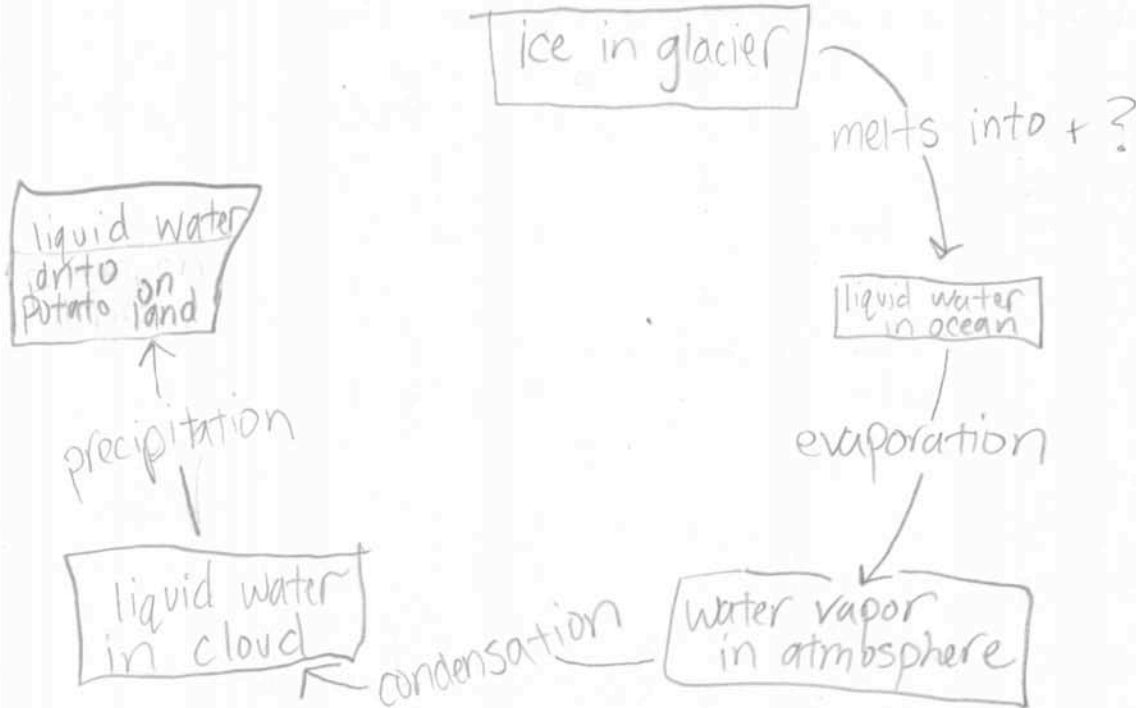 ice in glacier
melts into + ?
liquid water
in ocean
evaporation
water vapor
in atmosphere
condensation
liquid water
in cloud
precipitation
liquid water
onto
potato on
land